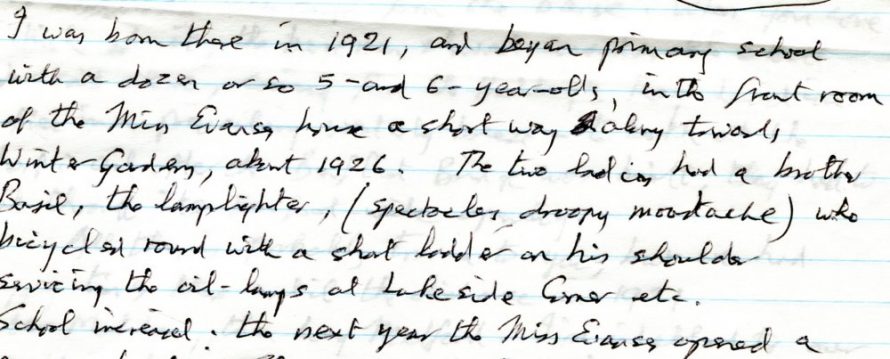 I was born there in 1921, and began primary school
with a dozen or so 5-and 6-year-olds, in the front room
of the Miss Evanses house a short way along towards
Winter Gardens, about 1926. The two ladies had a brother
Basil, the lamplighter, (spectacles, droopy moustache) who
bicycled round with a short ladder on his shoulder
servicing the oil-lamps at Lakeside Corner etc.
School increased. the next year the Miss Evanses opened a